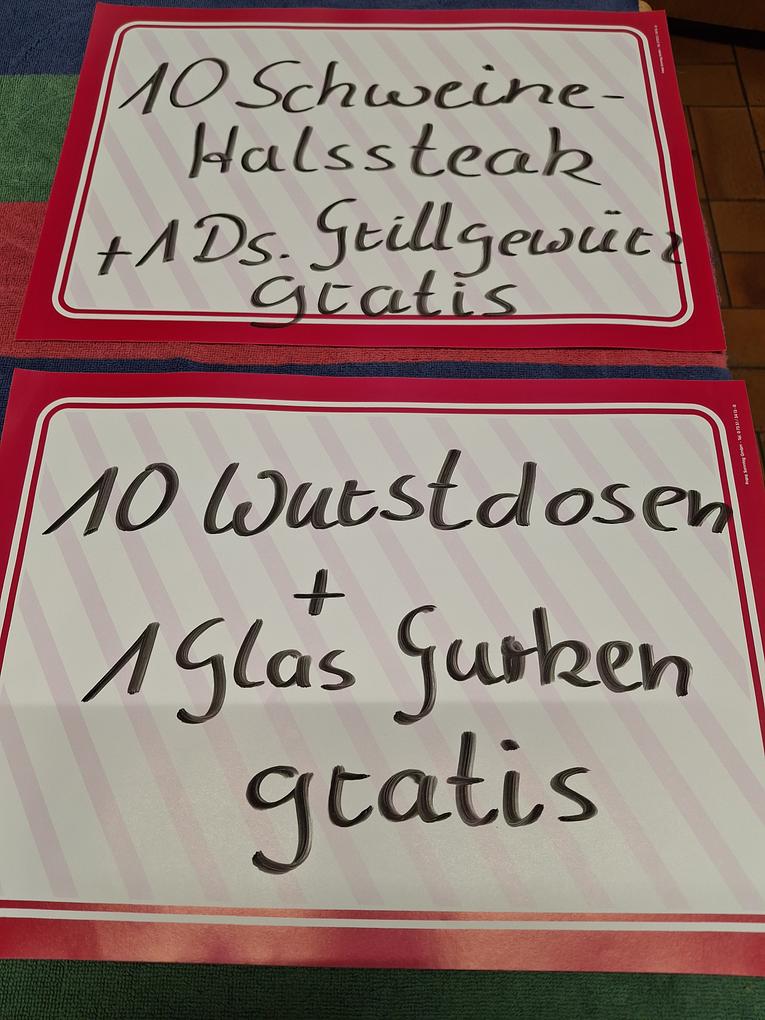 10 Schweine-
Halssteak
+1 Ds. Grillgewürz
gratis
10 Wurstdosen
+
1 Glas Gurken
gratis